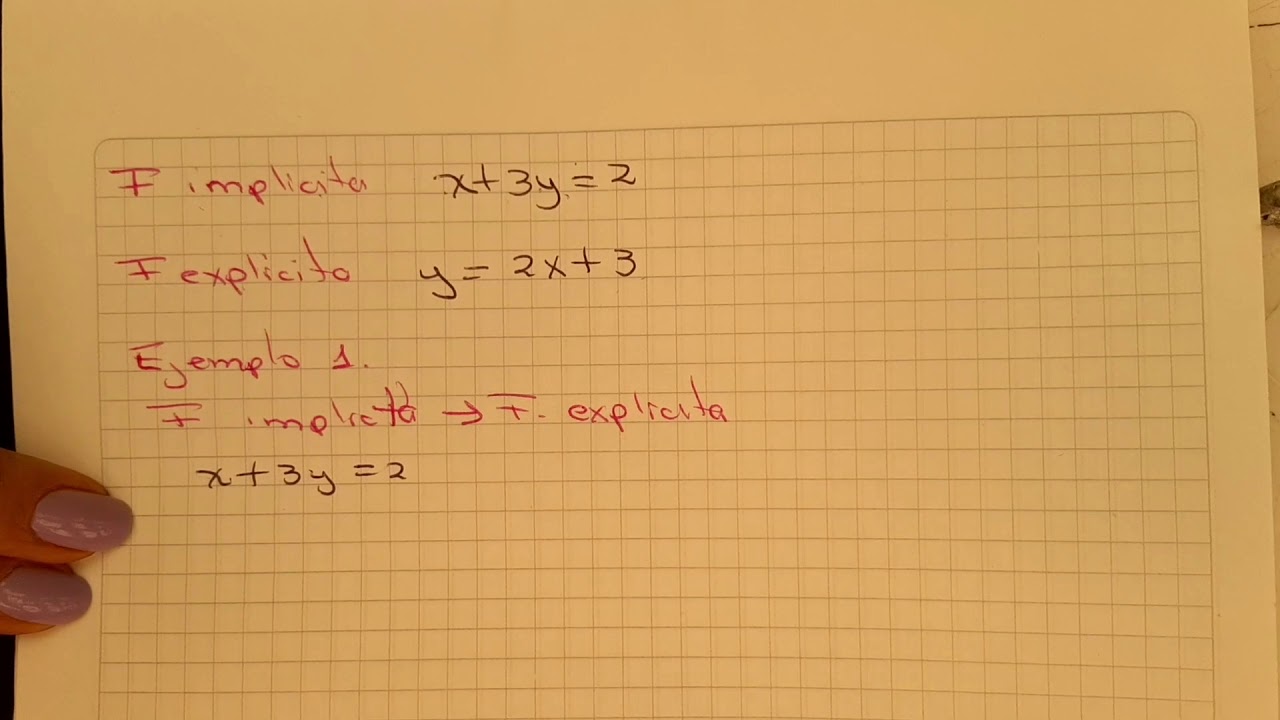 F implicita x+3y=2
F explicito y=2x+3
Ejemplo 1.
F implicita → F. explicita
x+3y=2